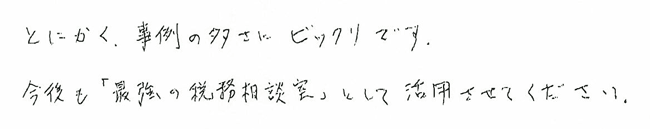 とにかく、事例の多さにビックリです。
今後も「最強の税務相談室」として活用させてください。